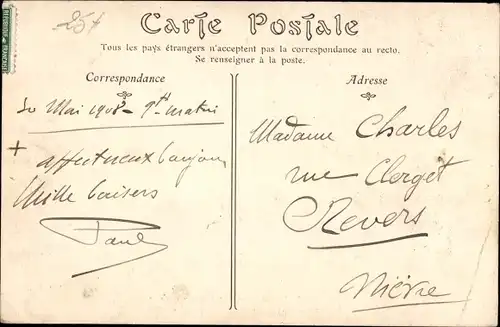 25f
REPUBLIQUE FRANÇAISE
Carte Postale
Tous les pays étrangers n'acceptent pas la correspondance au recto.
Se renseigner à la poste.
Correspondance
Mai 1908 - 9h matin
+
affectueux bonjour
Mille baisers
Paul
Adresse
Madame Charles
rue Clerget
Nevers
Nièvre